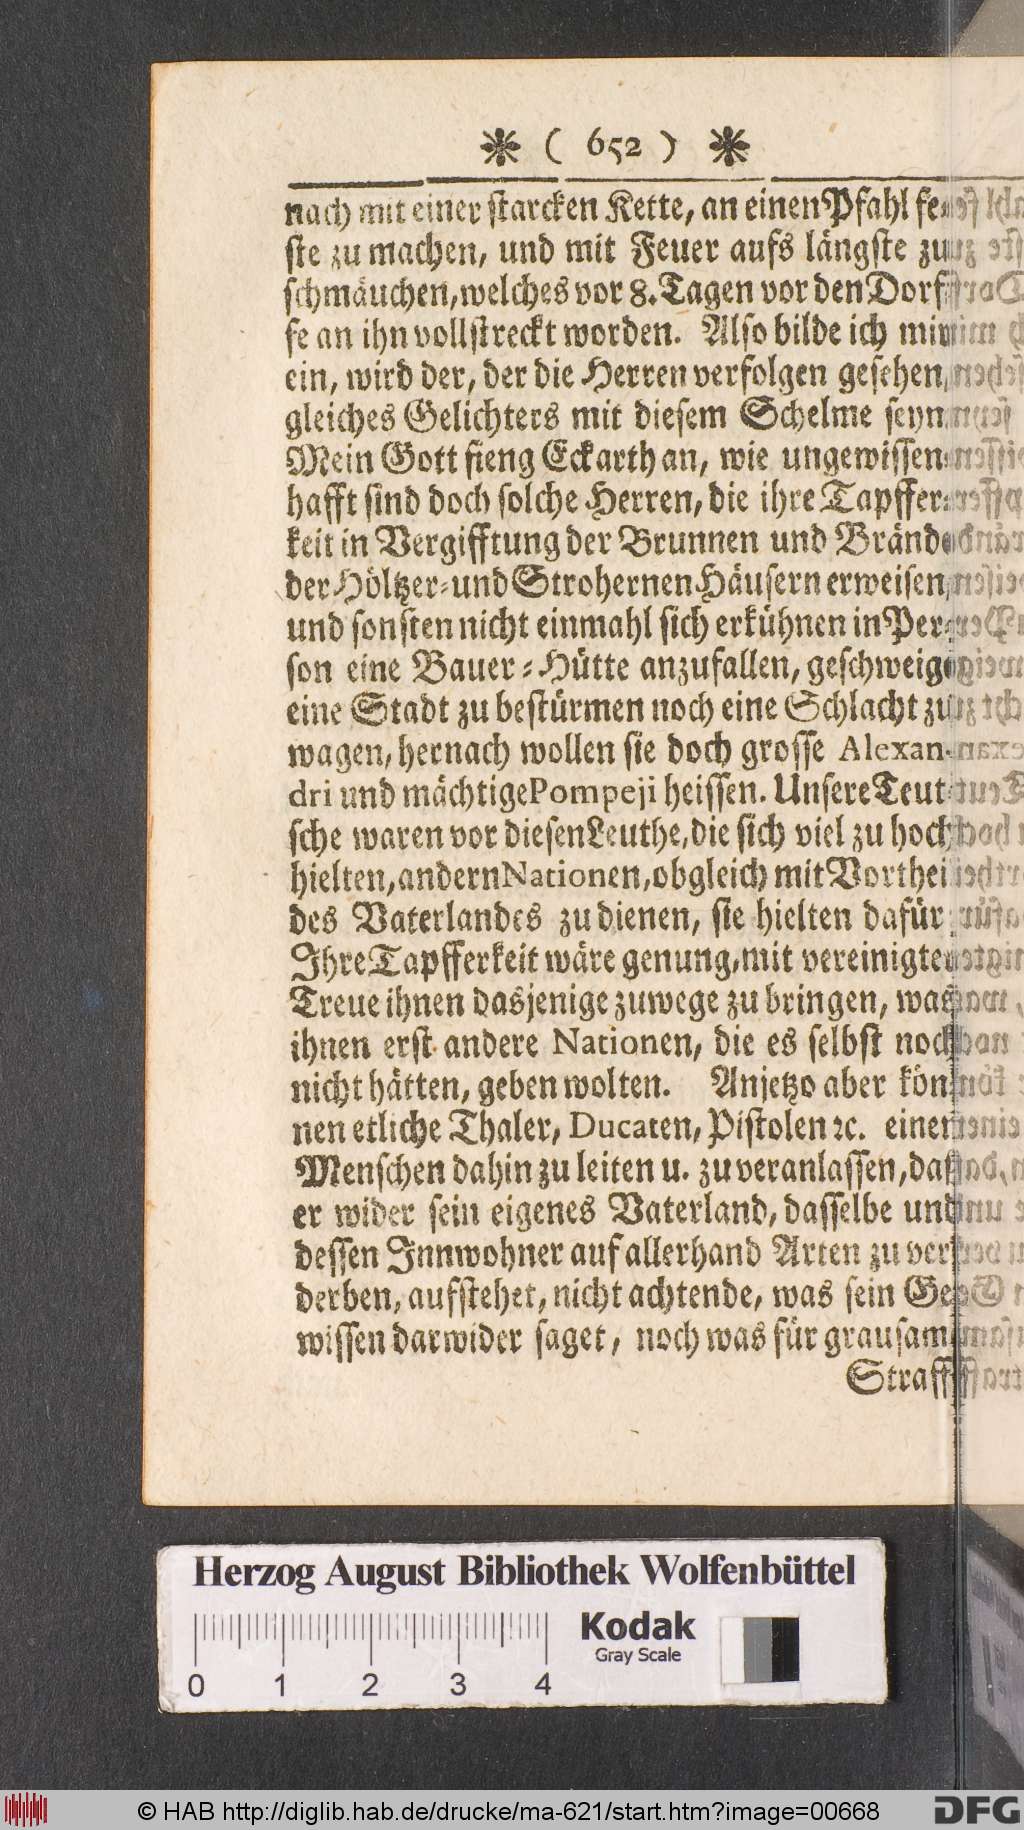 ❋ ( 652 ) ❋
nach mit einer starcken Kette, an einen Pfahl fe-
ste zu machen, und mit Feuer aufs längste zu
schmäuchen, welches vor 8. Tagen vor den Dorf-
fe an ihn vollstreckt worden. Also bilde ich mir
ein, wird der, der die Herren verfolgen gesehen,
gleiches Gelichters mit diesem Schelme seyn.
Mein Gott fieng Eckarth an, wie ungewissen-
hafft sind doch solche Herren, die ihre Tapffer-
keit in Vergifftung der Brunnen und Brände
der Höltzer- und Strohernen Häusern erweisen,
und sonsten nicht einmahl sich erkühnen in Per-
son eine Bauer-Hütte anzufallen, geschweige
eine Stadt zu bestürmen noch eine Schlacht zu
wagen, hernach wollen sie doch grosse Alexan-
dri und mächtige Pompeji heissen. Unsere Teut-
sche waren vor diesen Leuthe, die sich viel zu hoch
hielten, andern Nationen, obgleich mit Vorthei
des Vaterlandes zu dienen, sie hielten dafür
Ihre Tapfferkeit wäre genung, mit vereinigter
Treue ihnen dasjenige zuwege zu bringen, was
ihnen erst andere Nationen, die es selbst noch
nicht hätten, geben wolten. Anjetzo aber kön-
nen etliche Thaler, Ducaten, Pistolen ꝛc. einen
Menschen dahin zu leiten u. zu veranlassen, daß
er wider sein eigenes Vaterland, dasselbe und
dessen Innwohner auf allerhand Arten zu ver-
derben, aufstehet, nicht achtende, was sein Ge-
wissen darwider saget, noch was für grausam
Straff
Herzog August Bibliothek Wolfenbüttel
Kodak
Gray Scale
0 1 2 3 4
© HAB http://diglib.hab.de/drucke/ma-621/start.htm?image=00668
DFG